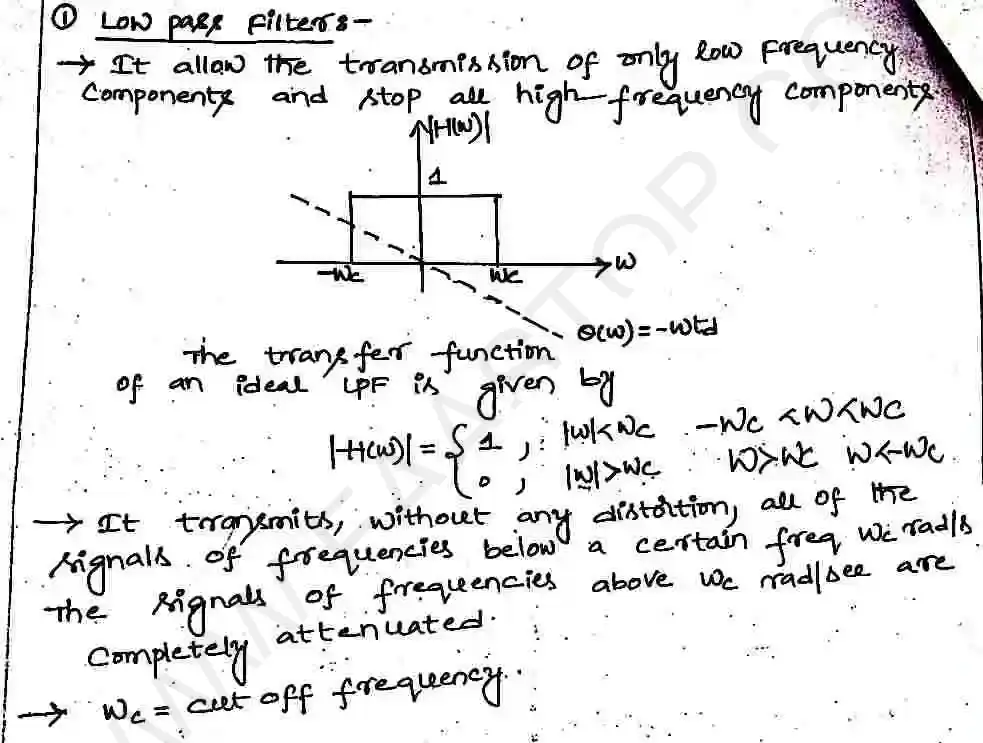 ① Low pass Filters:-
→ It allow the transmission of only low frequency
Components and stop all high-frequency components
|H(ω)|
1
-ωc ωc ω
θ(ω)=-ωtd
The transfer function
of an ideal LPF is given by
|H(ω)| = { 1 , : |ω|<ωc -ωc <ω<ωc
0 , |ω|>ωc ω>ωc ω<-ωc
→ It transmits, without any distortion, all of the
signals of frequencies below a certain freq ωc rad/s
The signals of frequencies above ωc rad/sec are
Completely attenuated.
→ ωc = cut off frequency.